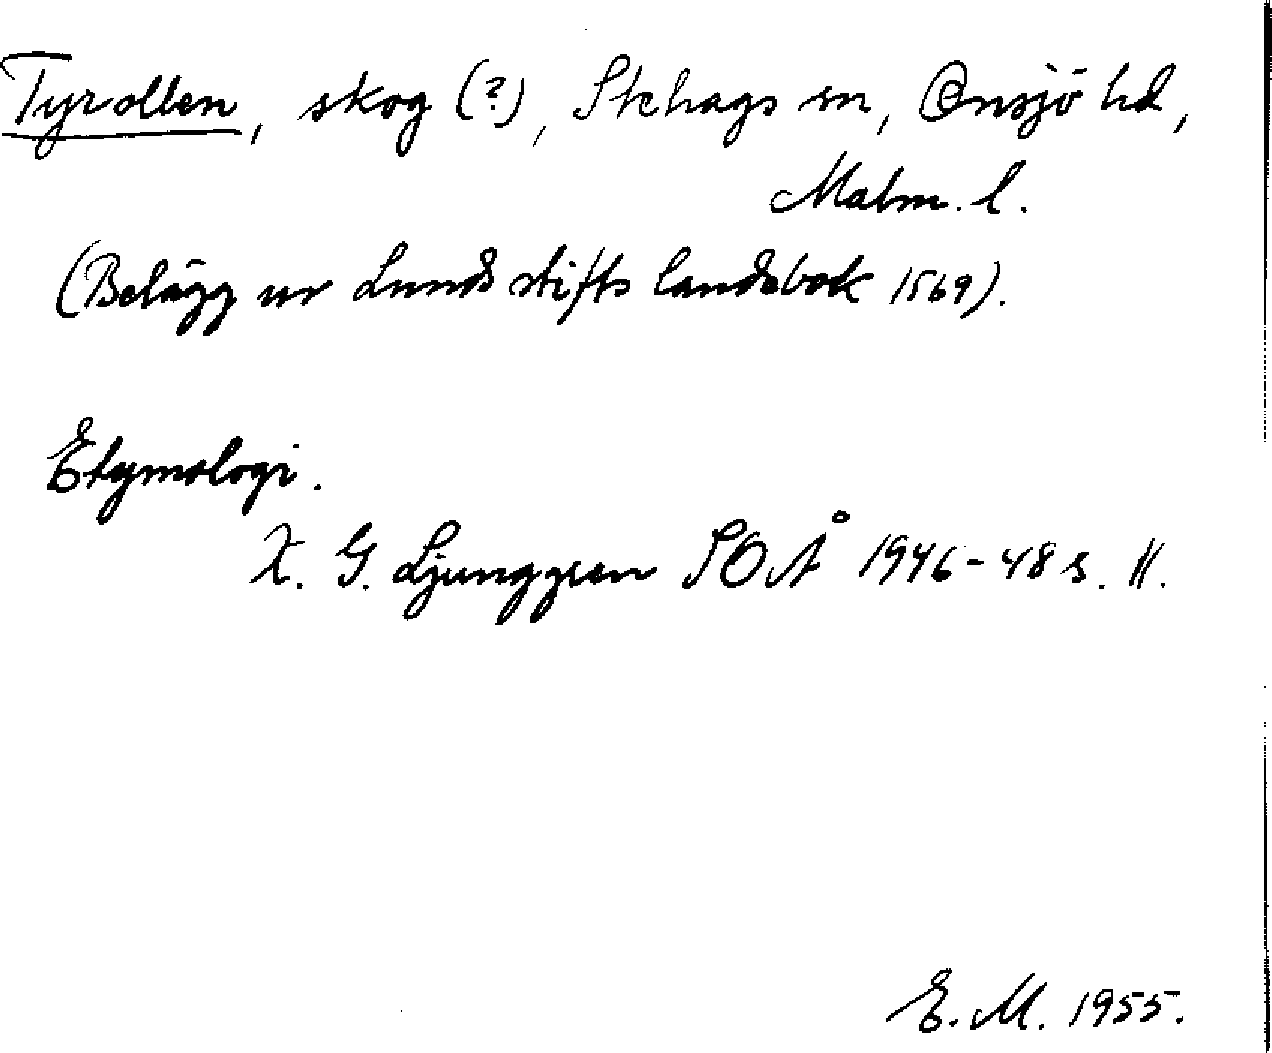 Tyrollen, skog (?), Stehags sn, Onsjö hd,
Malm. l.
(Belägg ur Lunds stifts landebok 1569).
Etymologi.
K. G. Ljunggren SOÅ 1946-48 s. 11.
E. M. 1955.